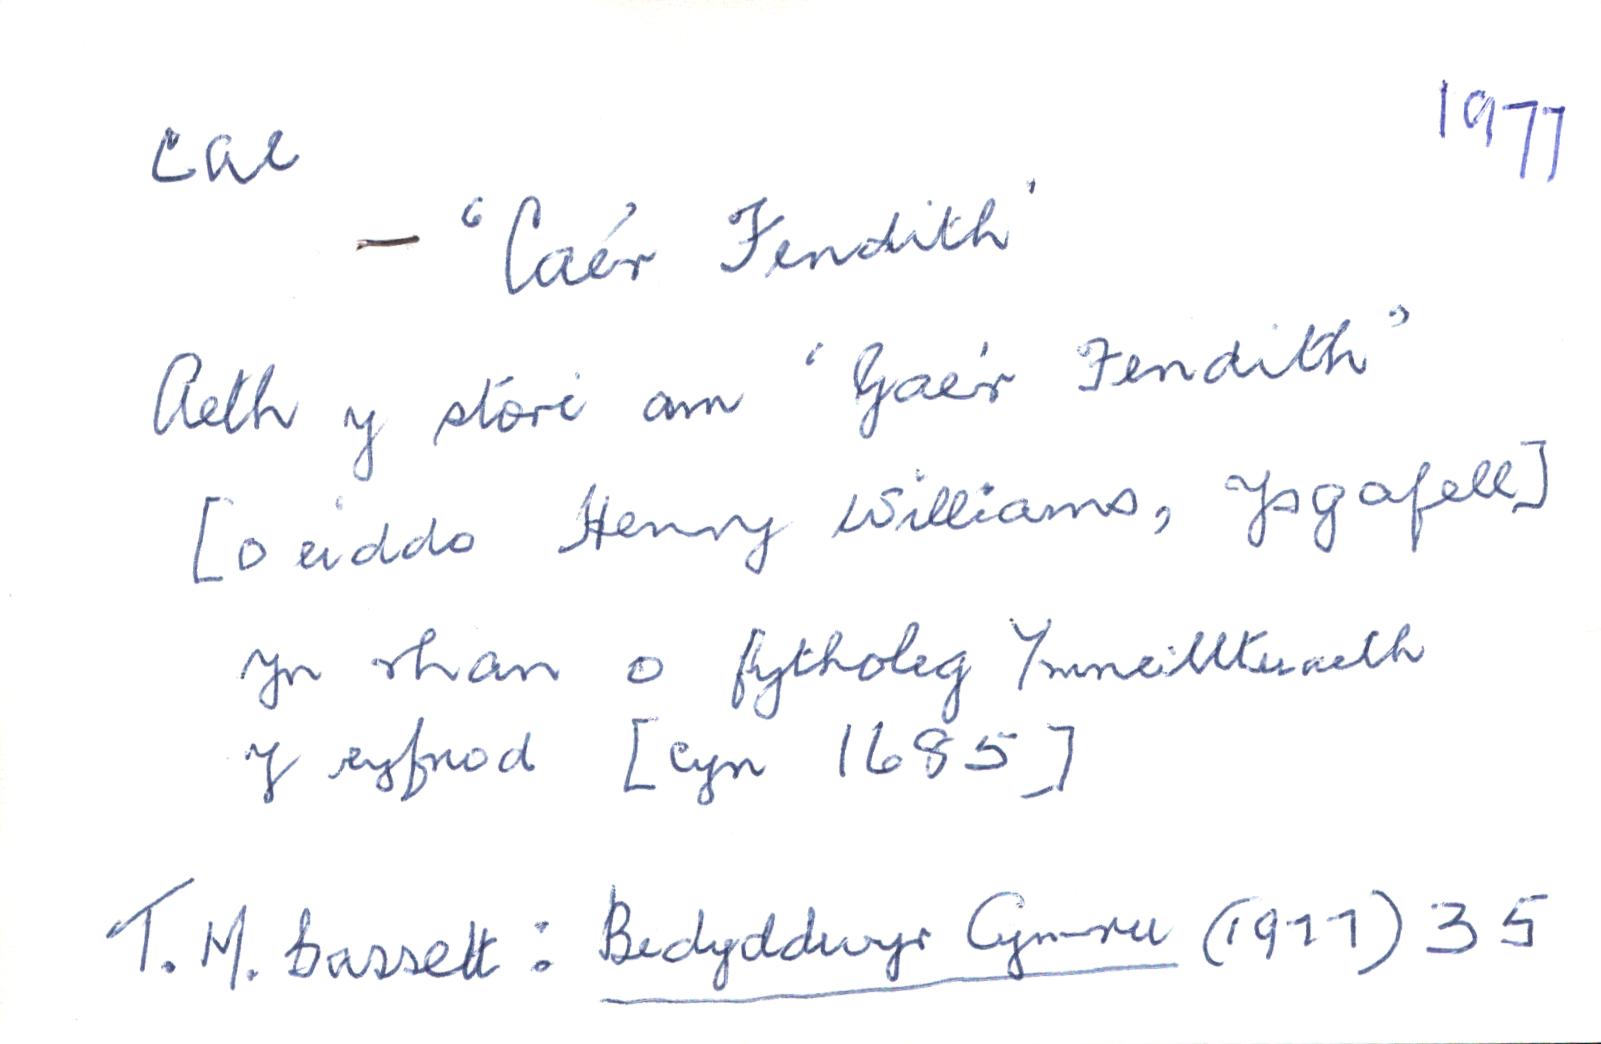 1977
cae
— 'Cae'r Fendith'
Aeth y stori am 'Gae'r Fendith'
[o eiddo Henry Williams, Ysgafell]
yn rhan o fytholeg Ymneilltuaeth
y cyfnod [cyn 1685]
T. M. Bassett : Bedyddwyr Cymru (1977) 35